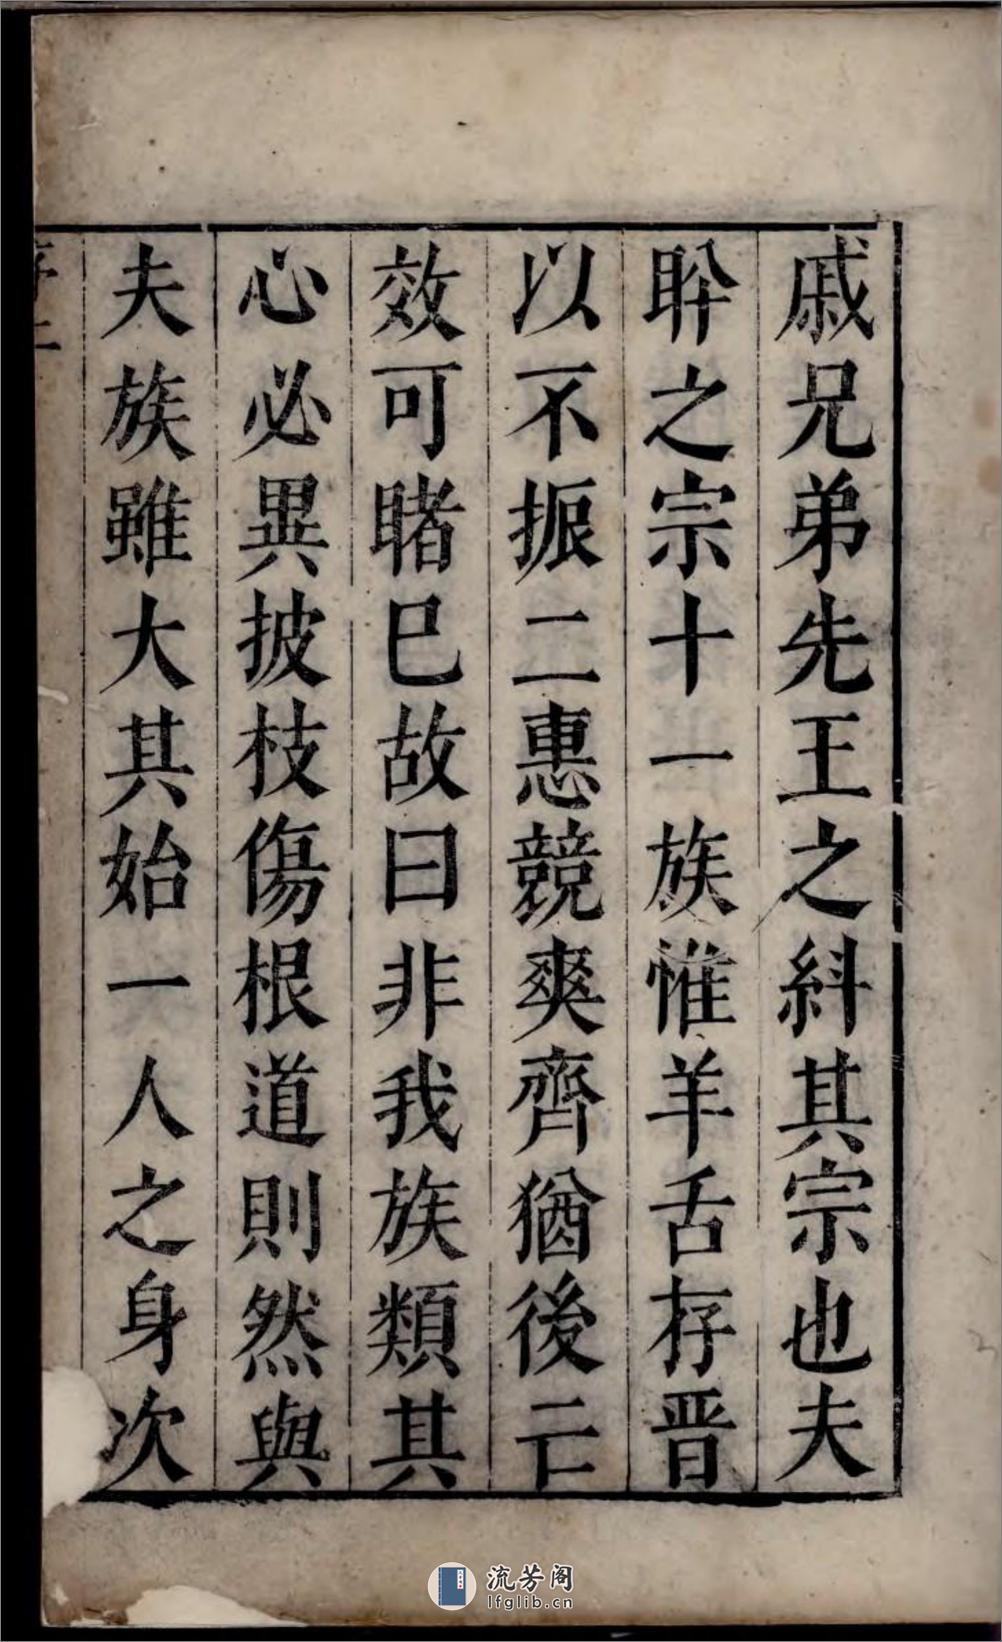 戚兄弟先王之糾其宗也夫
肸之宗十一族惟羊舌存晋
以不振二惠競爽齊猶後亡
效可睹巳故曰非我族類其
心必異披枝傷根道則然與
夫族雖大其始一人之身次
流芳阁
lfglib.cn